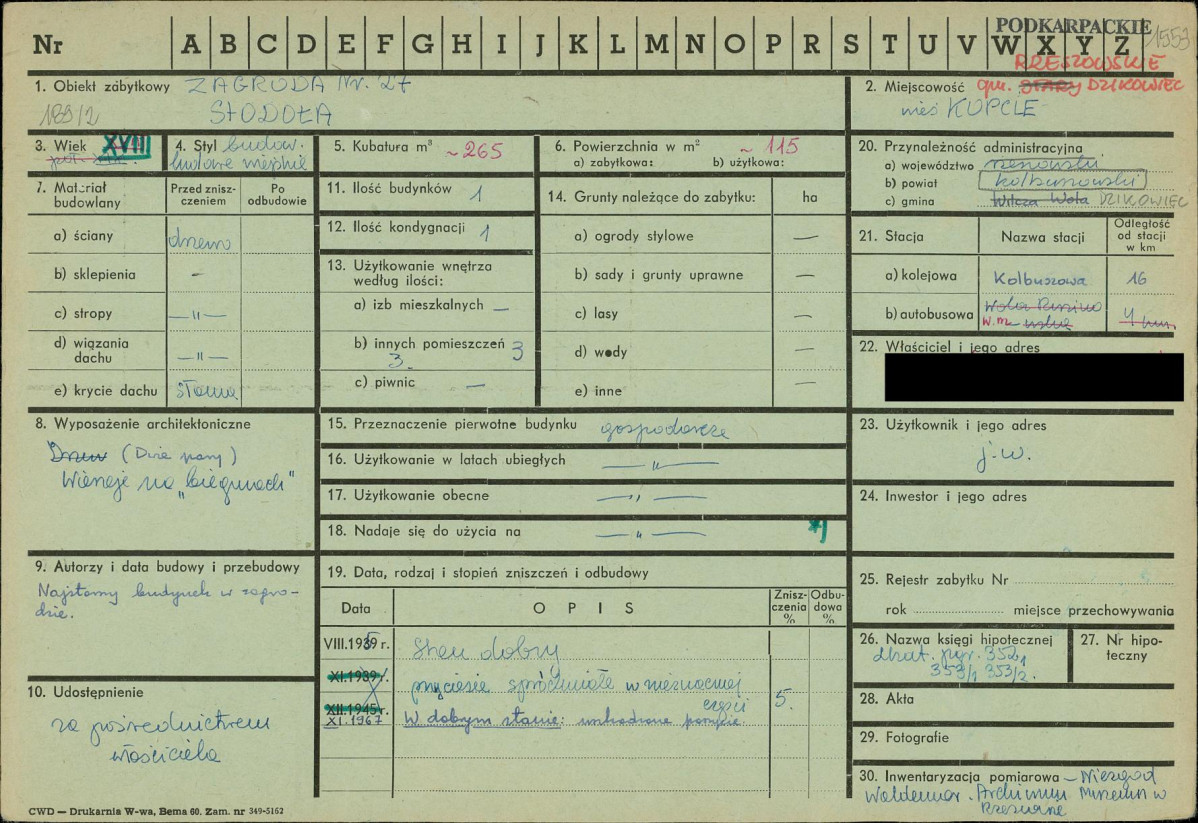 PODKARPACKIE
1553
Nr A B C D E F G H I J K L M N O P R S T U V W X Y Z
RZESZOWSKIE
1. Obiekt zabytkowy ZAGRODA Nr. 27
189/2 STODOŁA
2. Miejscowość gm. STARY DZIKOWIEC
wieś KOPCIE
3. Wiek XVIII
4. Styl budow.
ludowe wiejskie
5. Kubatura m³ ~265
6. Powierzchnia w m² ~115
a) zabytkowa: b) użytkowa:
20. Przynależność administracyjna
a) województwo rzeszowski
b) powiat kolbuszowski
c) gmina Wilcza Wola DZIKOWIEC
7. Materiał budowlany
Przed zniszczeniem
Po odbudowie
a) ściany drewno
b) sklepienia –
c) stropy –"–
d) wiązania dachu –"–
e) krycie dachu słoma
11. Ilość budynków 1
12. Ilość kondygnacji 1
13. Użytkowanie wnętrza
według ilości:
a) izb mieszkalnych –
b) innych pomieszczeń 3
3.
c) piwnic –
14. Grunty należące do zabytku: ha
a) ogrody stylowe –
b) sady i grunty uprawne –
c) lasy –
d) wody –
e) inne –
21. Stacja
Nazwa stacji
Odległość od stacji w km
a) kolejowa Kolbuszowa 16
b) autobusowa Wola
w.m.
4 km
22. Właściciel i jego adres
8. Wyposażenie architektoniczne
(Dwie pary)
Wierzeje na „biegunach"
15. Przeznaczenie pierwotne budynku gospodarcze
16. Użytkowanie w latach ubiegłych –"–
17. Użytkowanie obecne –"–
18. Nadaje się do użycia na –"–
23. Użytkownik i jego adres
j.w.
24. Inwestor i jego adres
9. Autorzy i data budowy i przebudowy
Najstarszy budynek w zagro-
dzie.
19. Data, rodzaj i stopień zniszczeń i odbudowy
Data
OPIS
Zniszczenia %
Odbudowa %
VIII.1939 r. Stan dobry
XI.1939 r. przyciesie spróchniałe w nieznacznej
części 5.
XII.1945 r.
XI.1967 W dobrym stanie: uszkodzone poszycie.
25. Rejestr zabytku Nr
rok miejsce przechowywania
26. Nazwa księgi hipotecznej
dkat. pgr. 352,
353/1 353/2.
27. Nr hipoteczny
10. Udostępnienie
za pośrednictwem
właściciela
28. Akta
29. Fotografie
30. Inwentaryzacja pomiarowa – Niezgod
Waldemar. Archiwum Muzeum w
Rzeszowie
CWD — Drukarnia W-wa, Bema 60. Zam. nr 349-5162